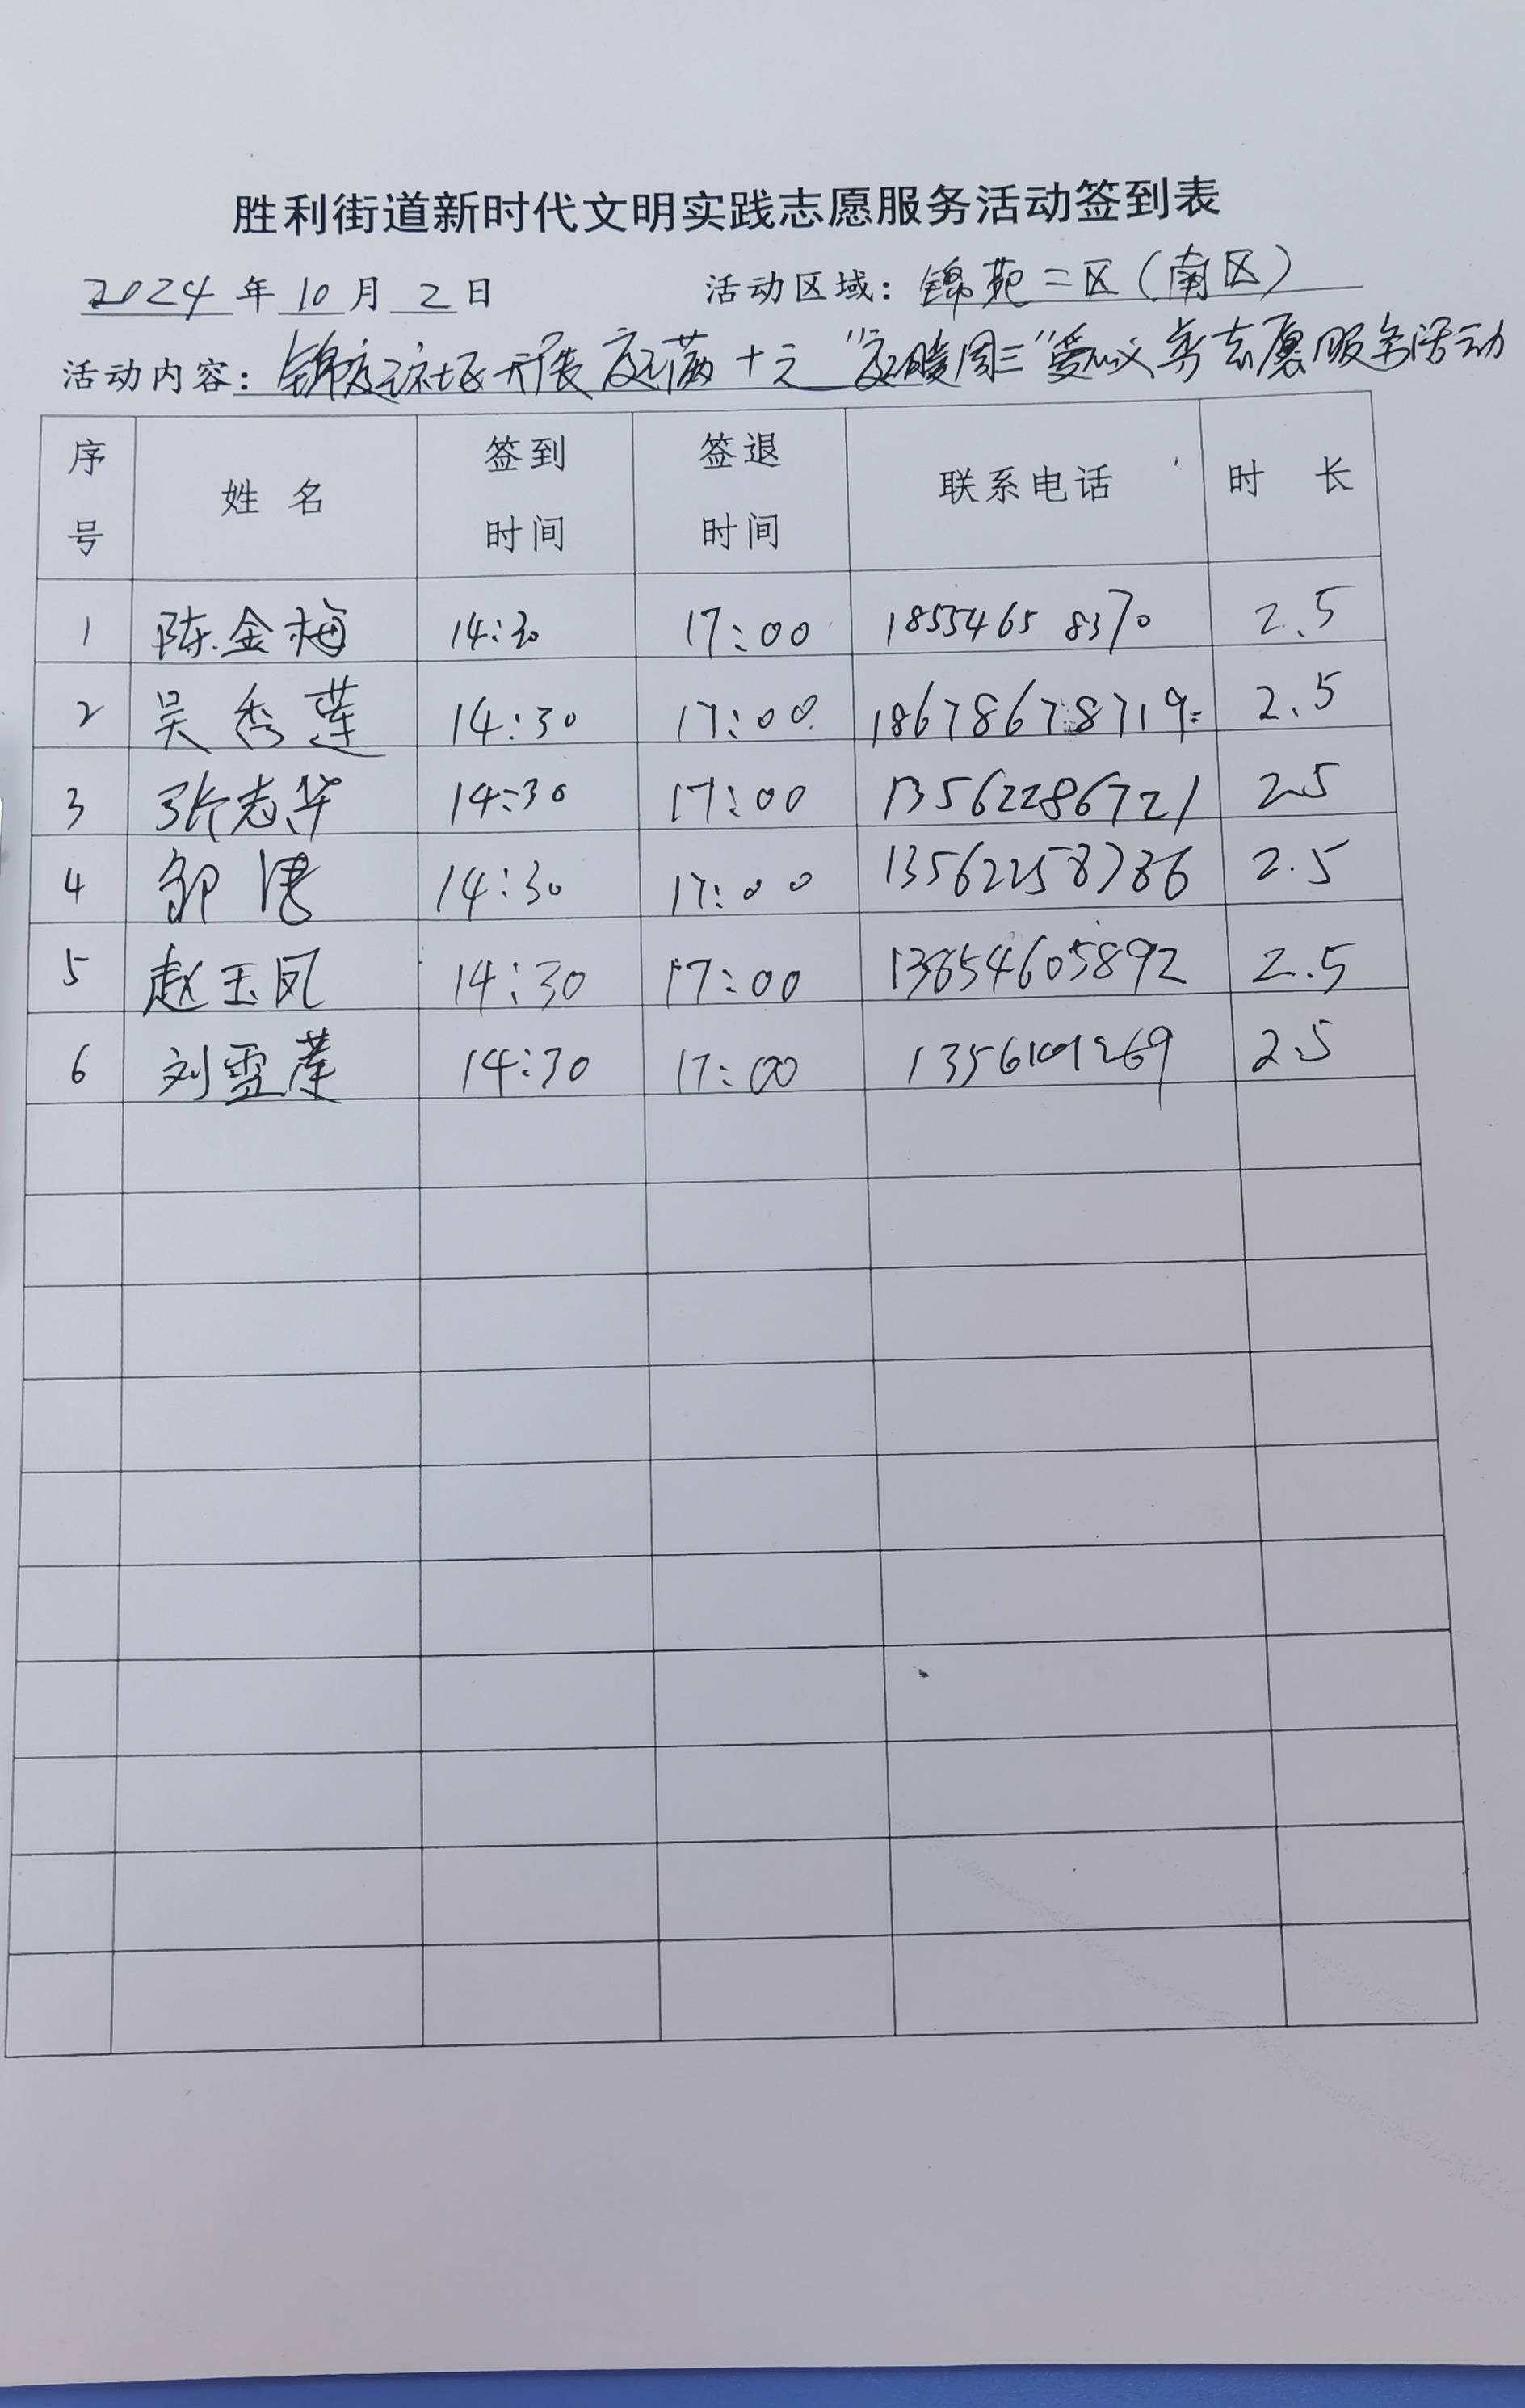 胜利街道新时代文明实践志愿服务活动签到表
2024年10月2日 活动区域：锦苑二区（南区）
活动内容：锦庭社区开展庭满十元“庭暖周三”爱心义剪志愿服务活动
序号 姓名 签到时间 签退时间 联系电话 时长
1 陈金梅 14:30 17:00 18554658370 2.5
2 吴秀莲 14:30 17:00 18678678719 2.5
3 张志华 14:30 17:00 13562286721 2.5
4 邹 14:30 17:00 13562258786 2.5
5 赵玉凤 14:30 17:00 13654605892 2.5
6 刘雪莲 14:30 17:00 2.5